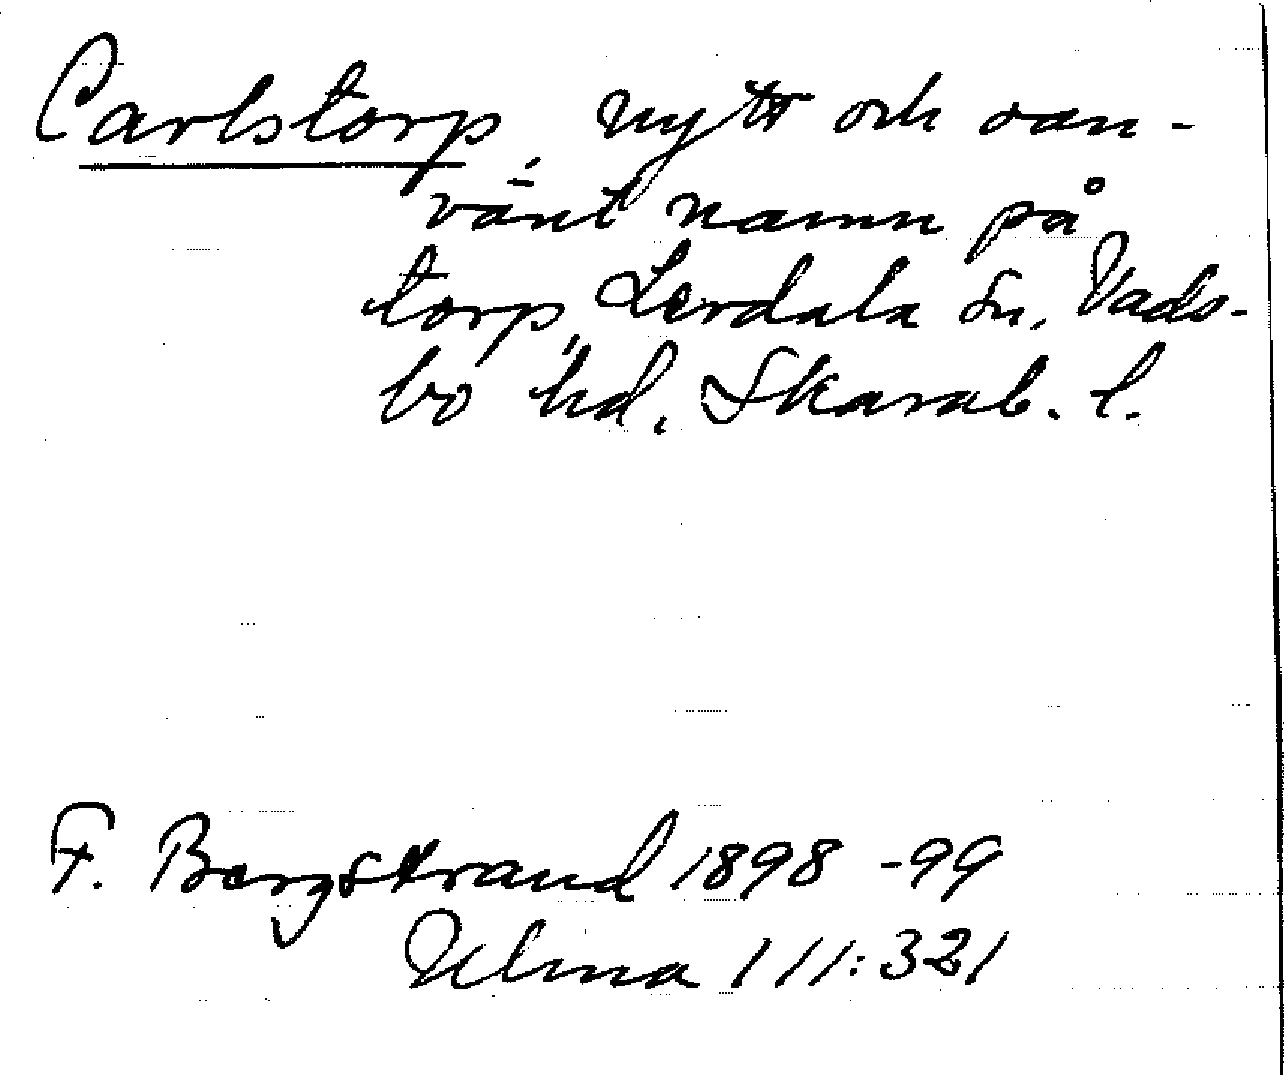 Carlstorp, nytt och oan-
vänt namn på
torp, Lerdala sn, Vads-
bo hd, Skarab. l.
F. Bergstrand 1898-99
Ulma 111:321